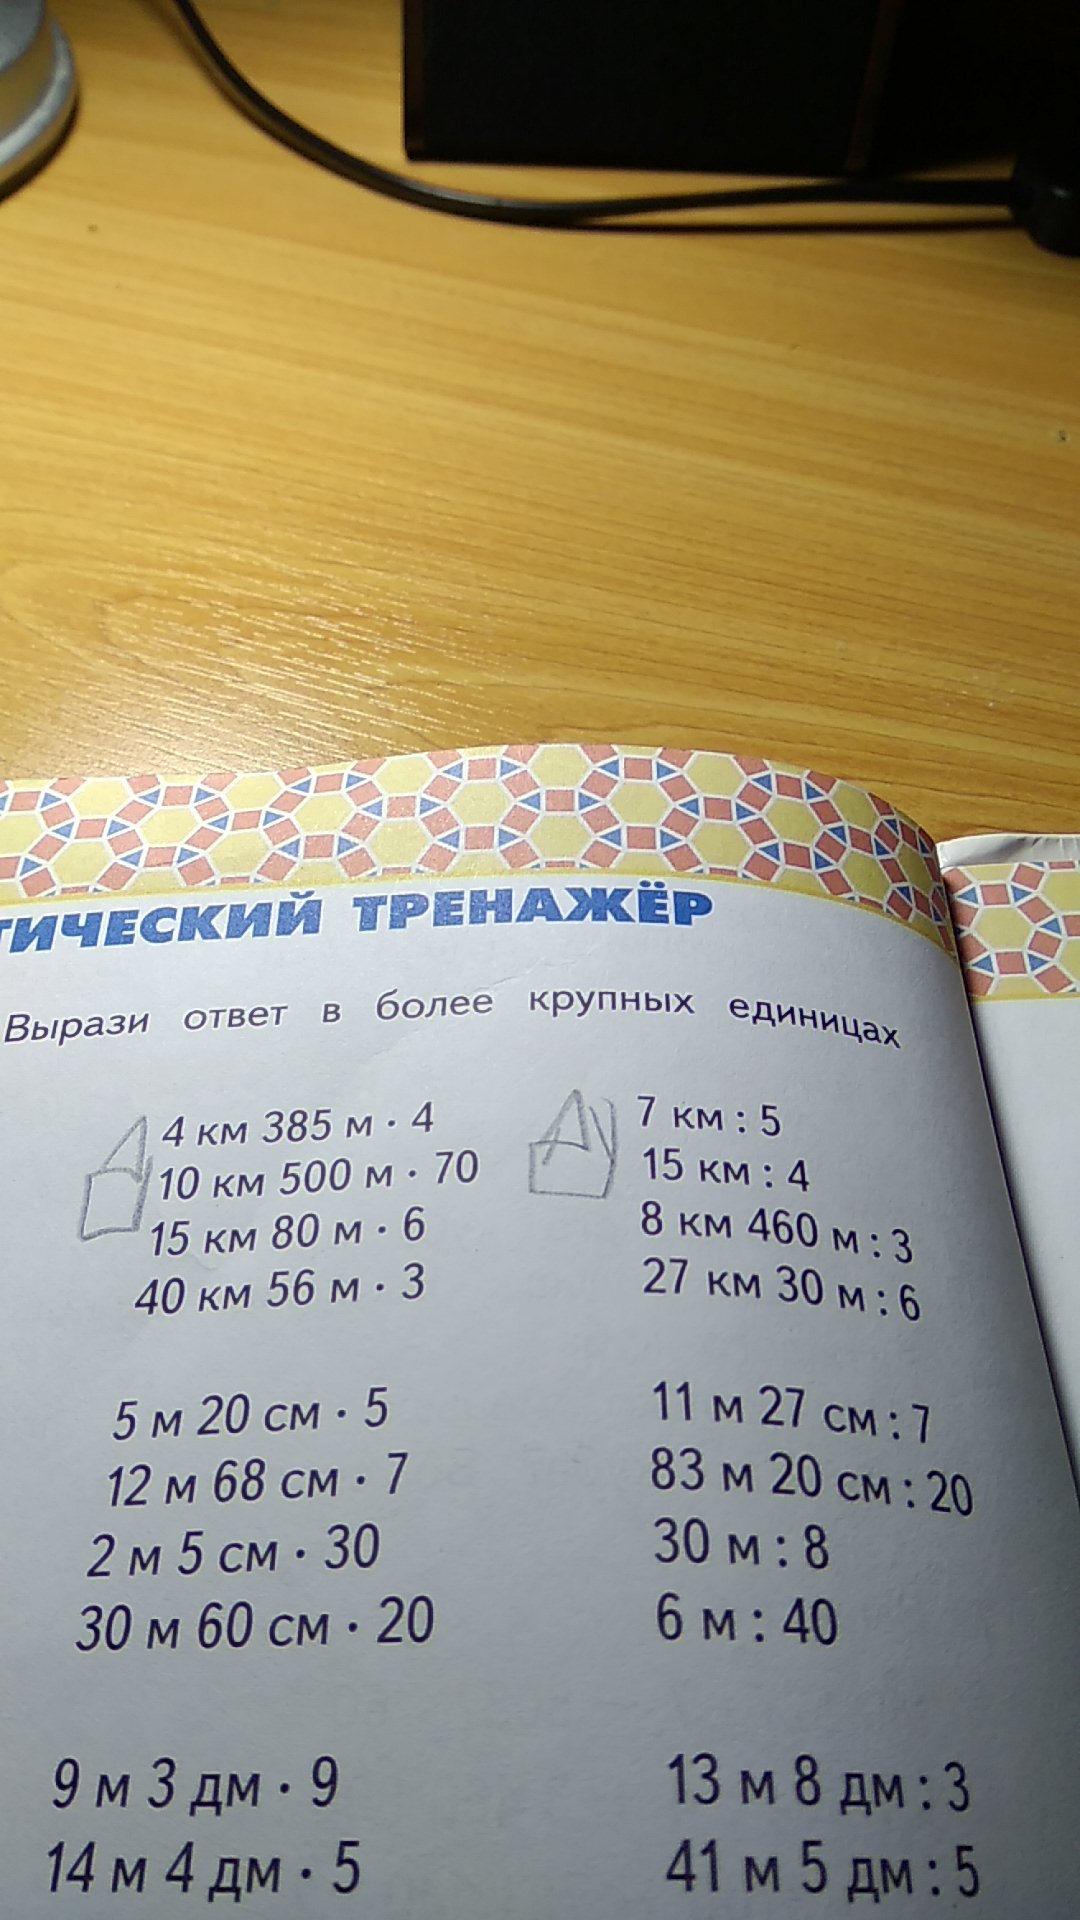 ТИЧЕСКИЙ ТРЕНАЖЁР
Вырази ответ в более крупных единицах
4 км 385 м · 4
10 км 500 м · 70
15 км 80 м · 6
40 км 56 м · 3
Ду
7 км : 5
15 км : 4
8 км 460 м : 3
27 км 30 м : 6
5 м 20 см · 5
12 м 68 см · 7
2 м 5 см · 30
30 м 60 см · 20
11 м 27 см : 7
83 м 20 см : 20
30 м : 8
6 м : 40
9 м 3 дм · 9
14 м 4 дм · 5
13 м 8 дм : 3
41 м 5 дм : 5